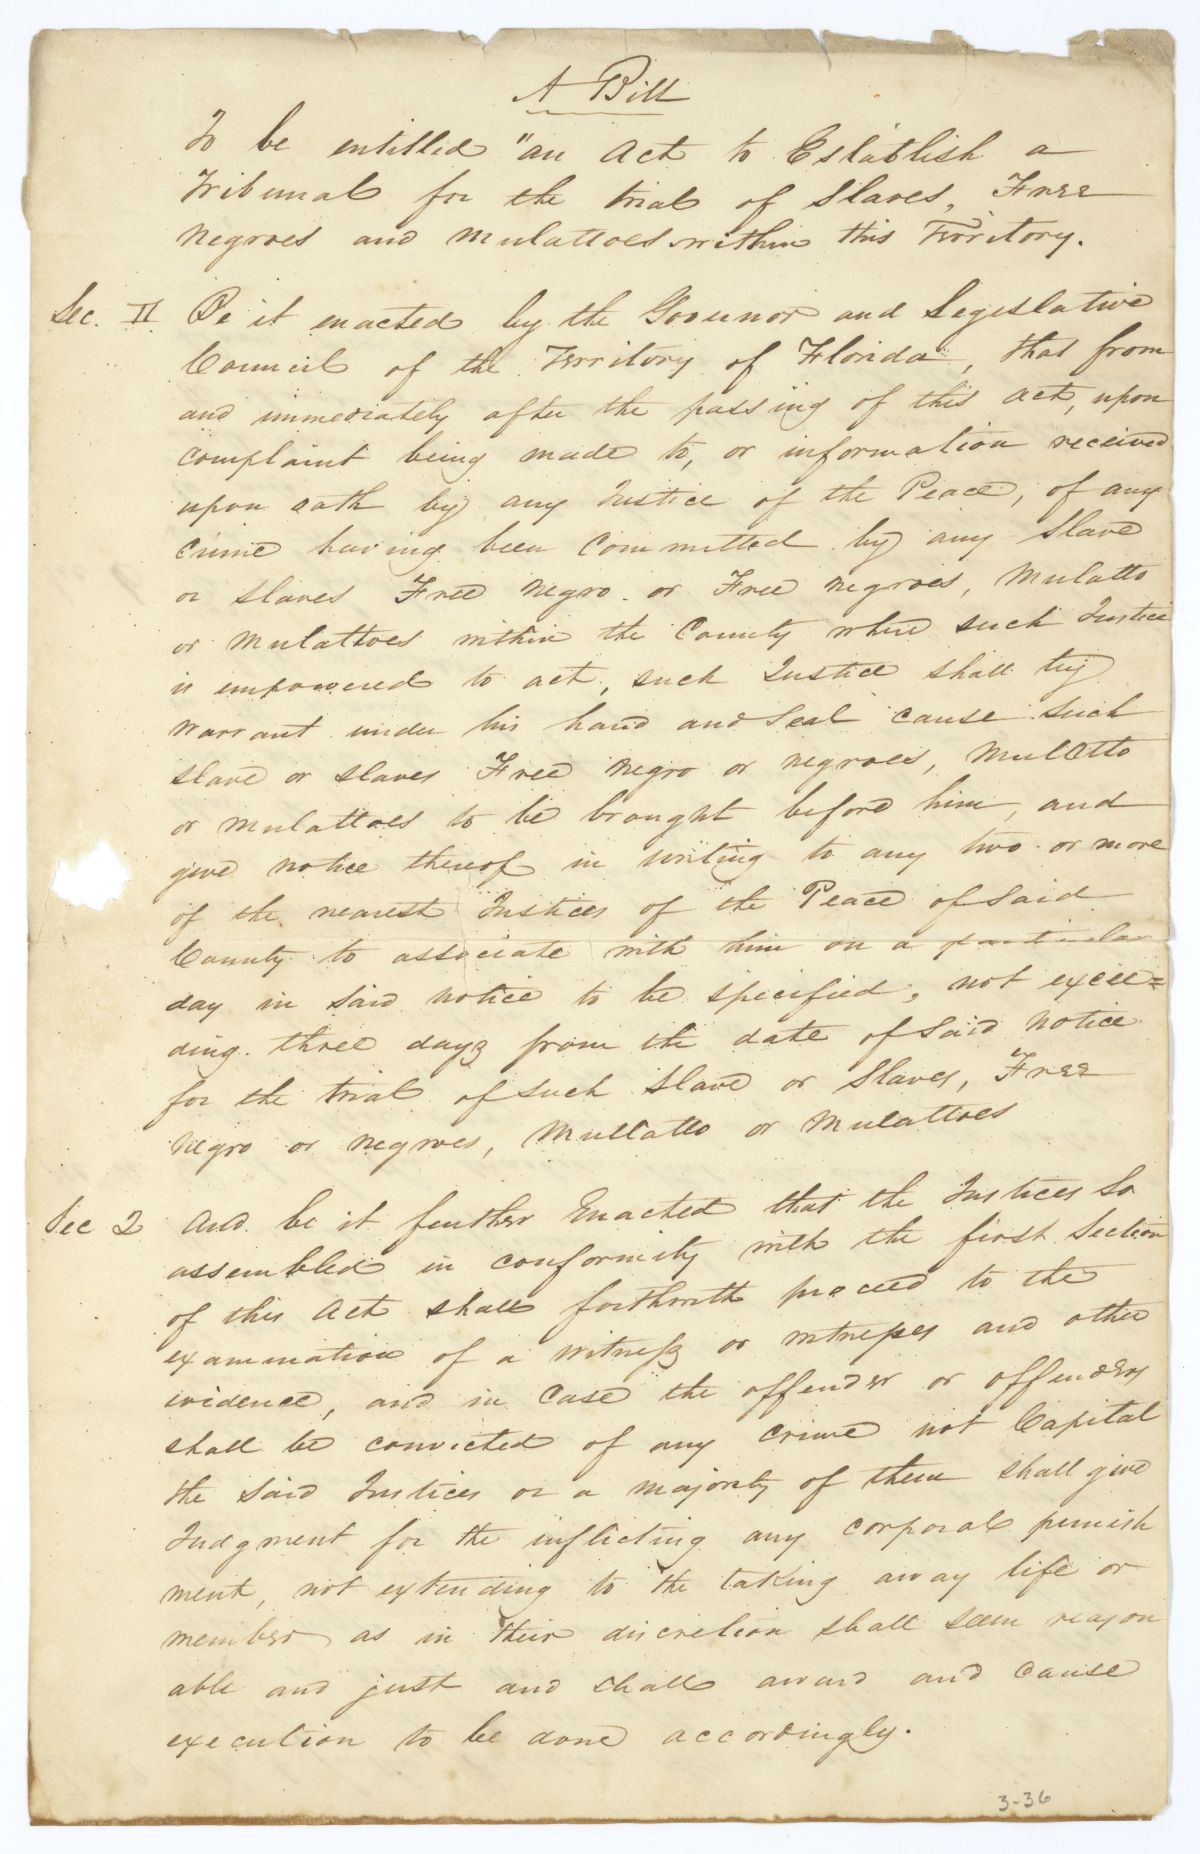 A Bill
To be entitled "an Act to Establish a
Tribunal for the trial of Slaves, Free
Negroes and Mulattoes within this Territory.
Sec. II Be it enacted by the Governor and Legislative
Council of the Territory of Florida, that from
and immediately after the passing of this act, upon
complaint being made to, or information received
upon oath by any Justice of the Peace, of any
crime having been Committed by any Slave
or Slaves Free Negro or Free Negroes, Mulatto
or Mulattoes within the County where such Justice
is empowered to act, such Justice shall by
warrant under his hand and Seal cause such
slave or slaves Free Negro or Negroes, Mulatto
or Mulattoes to be brought before him, and
give notice thereof in writing to any two or more
of the nearest Justices of the Peace of Said
County to associate with him on a particular
day in said notice to be specified, not excee=
ding three days from the date of Said Notice
for the trial of such Slave or Slaves, Free
Negro or Negroes, Mullatto or Mulattoes
Sec 2 And be it further Enacted that the Justices So
assembled in conformity with the first Section
of this Act shall forthwith proceed to the
examination of a witness or witnesses and other
evidence, and in Case the offender or offenders
shall be convicted of any crime not Capital
the Said Justices or a majority of them shall give
Judgment for the inflicting any corporal punish
ment, not extending to the taking away life or
member as in their discretion shall seem reason
able and just and shall award and cause
execution to be done accordingly.
3-36